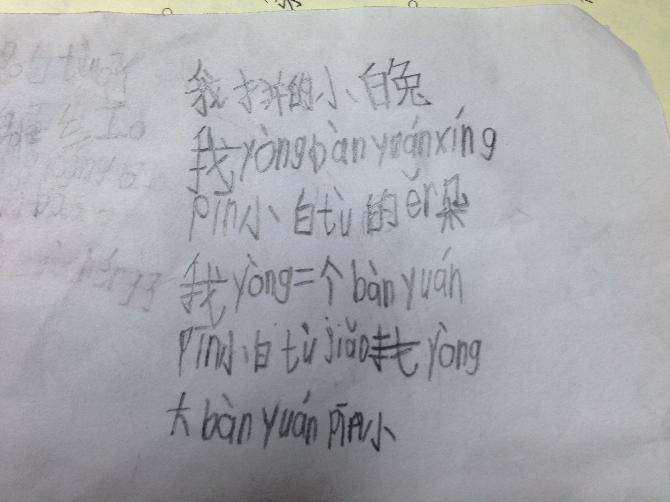 我拼的小白兔
我yòng bàn yuánxíng
pīn小白tù的ěr朵
我yòng二个bàn yuán
pīn小白tù jiǎo我yòng
大bàn yuán pīn小